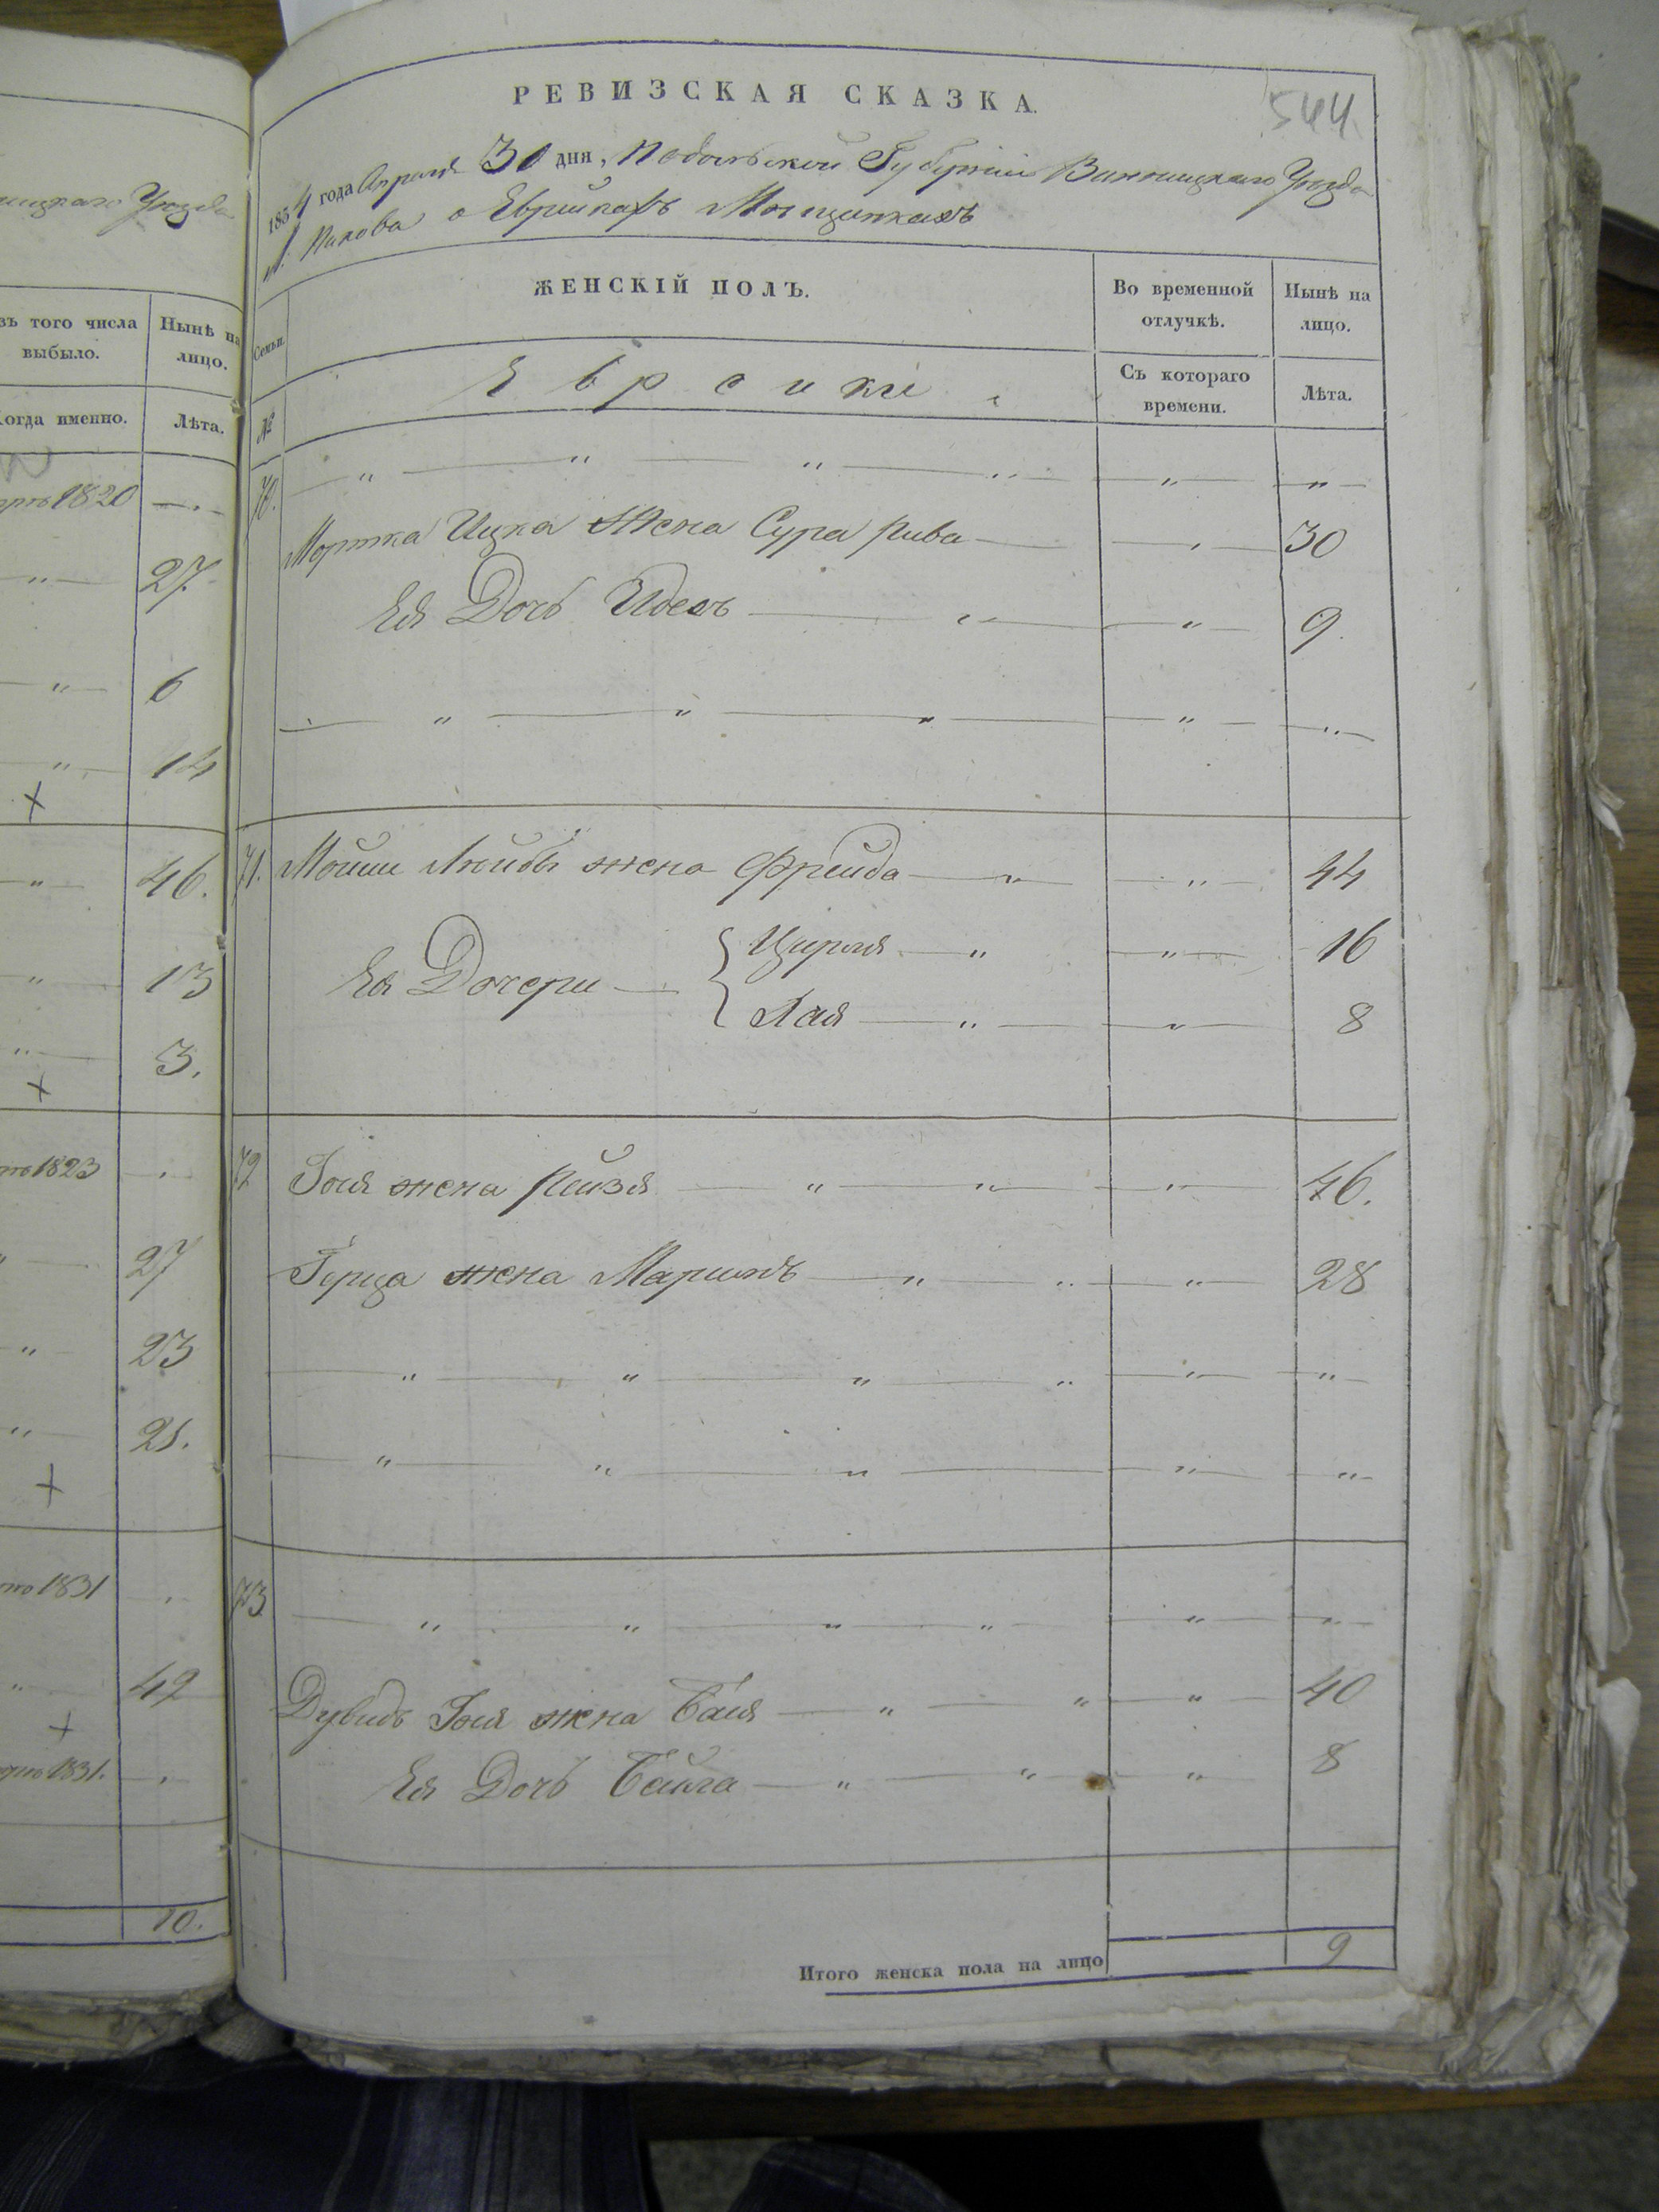 РЕВИЗСКАЯ СКАЗКА.
544
1854 года Апреля 30 дня, Подольской Губернии Винницкаго Уезда
м. Пикова о Еврейкахъ Мещанкахъ
Семьи.
ЖЕНСКІЙ ПОЛЪ.
Во временной отлучкѣ.
Нынѣ на лицо.
№
Еврейки
Съ котораго времени.
Лѣта.
70. — „ — „ — „ — „ — „ — „ —
Мортка Ицка Жена Сура Рива — „ — 30
Ея Дочь Идесъ — „ — „ — 9.
— „ — „ — „ — „ — „ —
71. Мошки Лейбы жена Фрейда — „ — „ — 44
Ея Дочери — { Цирля — „ — „ — 16
{ Хая — „ — „ — 8
72 Іося жена Рейзя — „ — „ — „ — 46.
Герца жена Маримъ — „ — „ — „ — 28
— „ — „ — „ — „ — „ — „ —
— „ — „ — „ — „ — „ —
73 — „ — „ — „ — „ — „ — „ —
Дувидъ Іося жена Бася — „ — „ — „ — 40
Ея Дочь Бейла — „ — „ — „ 8
Итого женска пола на лицо 9
ницкаго Уезда
зъ того числа выбыло.
Нынѣ на лицо.
Когда именно.
Лѣта.
1820 — „ —
— „ — 27.
— „ — 6
— „ — 14
+
— „ — 46.
— „ — 13
— „ — 3.
+
1823
— 27
„ — 23
„ — 21.
+
1831
„ — 42
+
1831.
10.